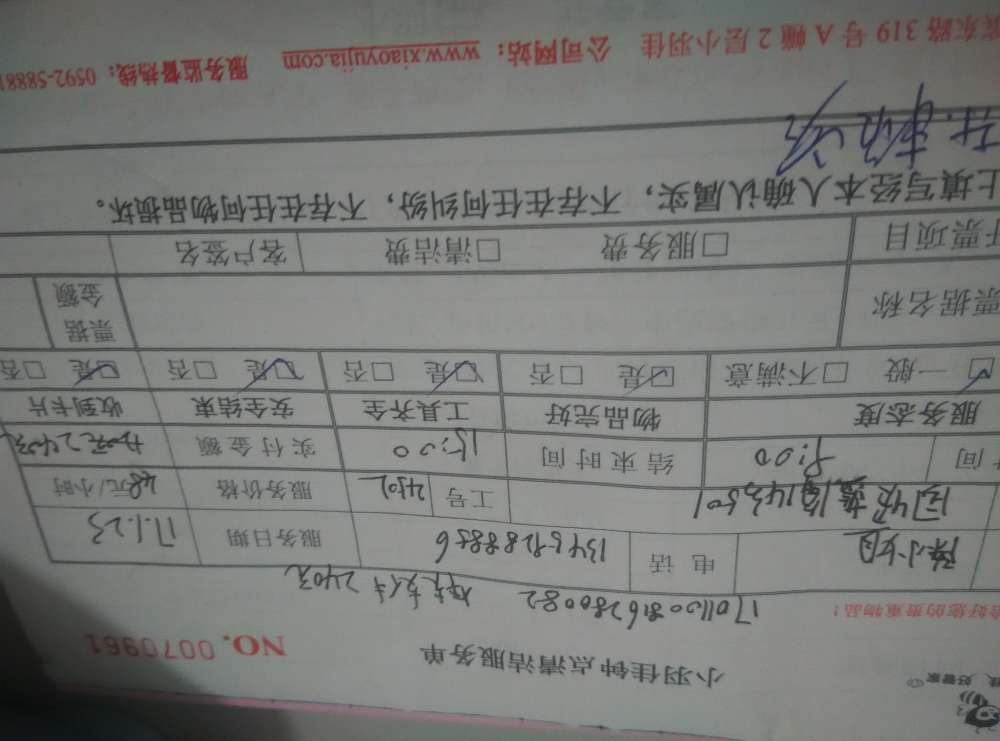 小羽佳钟点清洁服务单 NO. 0070961
好您的贵重物品!
17011300816280082
240元
陈小姐 电话 13459288856 服务日期 17.1.23
143,501 工号 2402 服务价格 48元/小时
间 9:00 结束时间 15:00 实付金额 240元
服务态度 物品完好 工具齐全 安全结束 收到卡片
☑一般 □不满意 ☑是 □否 ☑是 □否 ☑是 □否 ☑是 □否
票据名称 票据金额
开票项目 □服务费 □清洁费 客户签名
上填写经本人确认属实,不存在任何纠纷,不存在任何物品损坏。
东路 319 号 A 幢 2 层小羽佳 公司网站:www.xiaoyujia.com 服务监督热线:0592-58881